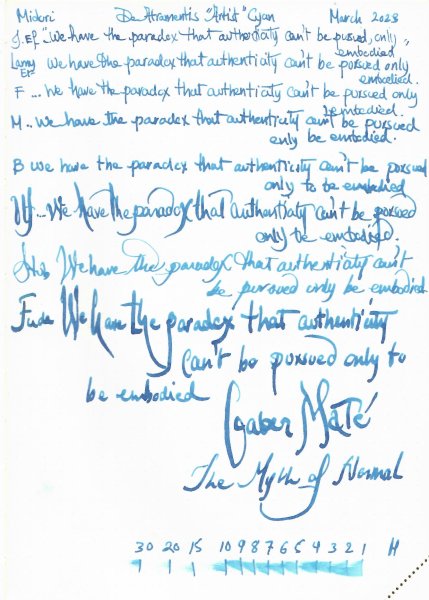 Midori De Atramentis "Artist" Cyan March 2023
J. EF "We have the paradox that authenticity can't be pursued, only
embodied"
Lamy EF We have the paradox that authenticity can't be pursued only
embodied.
F ... We have the paradox that authenticity can't be pursued only
embodied.
M.. We have the paradox that authenticity can't be pursued
only be embodied.
B we have the paradox that authenticity can't be pursued
only to be embodied
We have the paradox that authenticity can't be pursued
only be embodied.
We have the paradox that authenticity can't
be pursued only be embodied
Fude We have the paradox that authenticity
can't be pursued only to
be embodied
Gabor Maté
The Myth of Normal
30 20 15 10 9 8 7 6 5 4 3 2 1 H